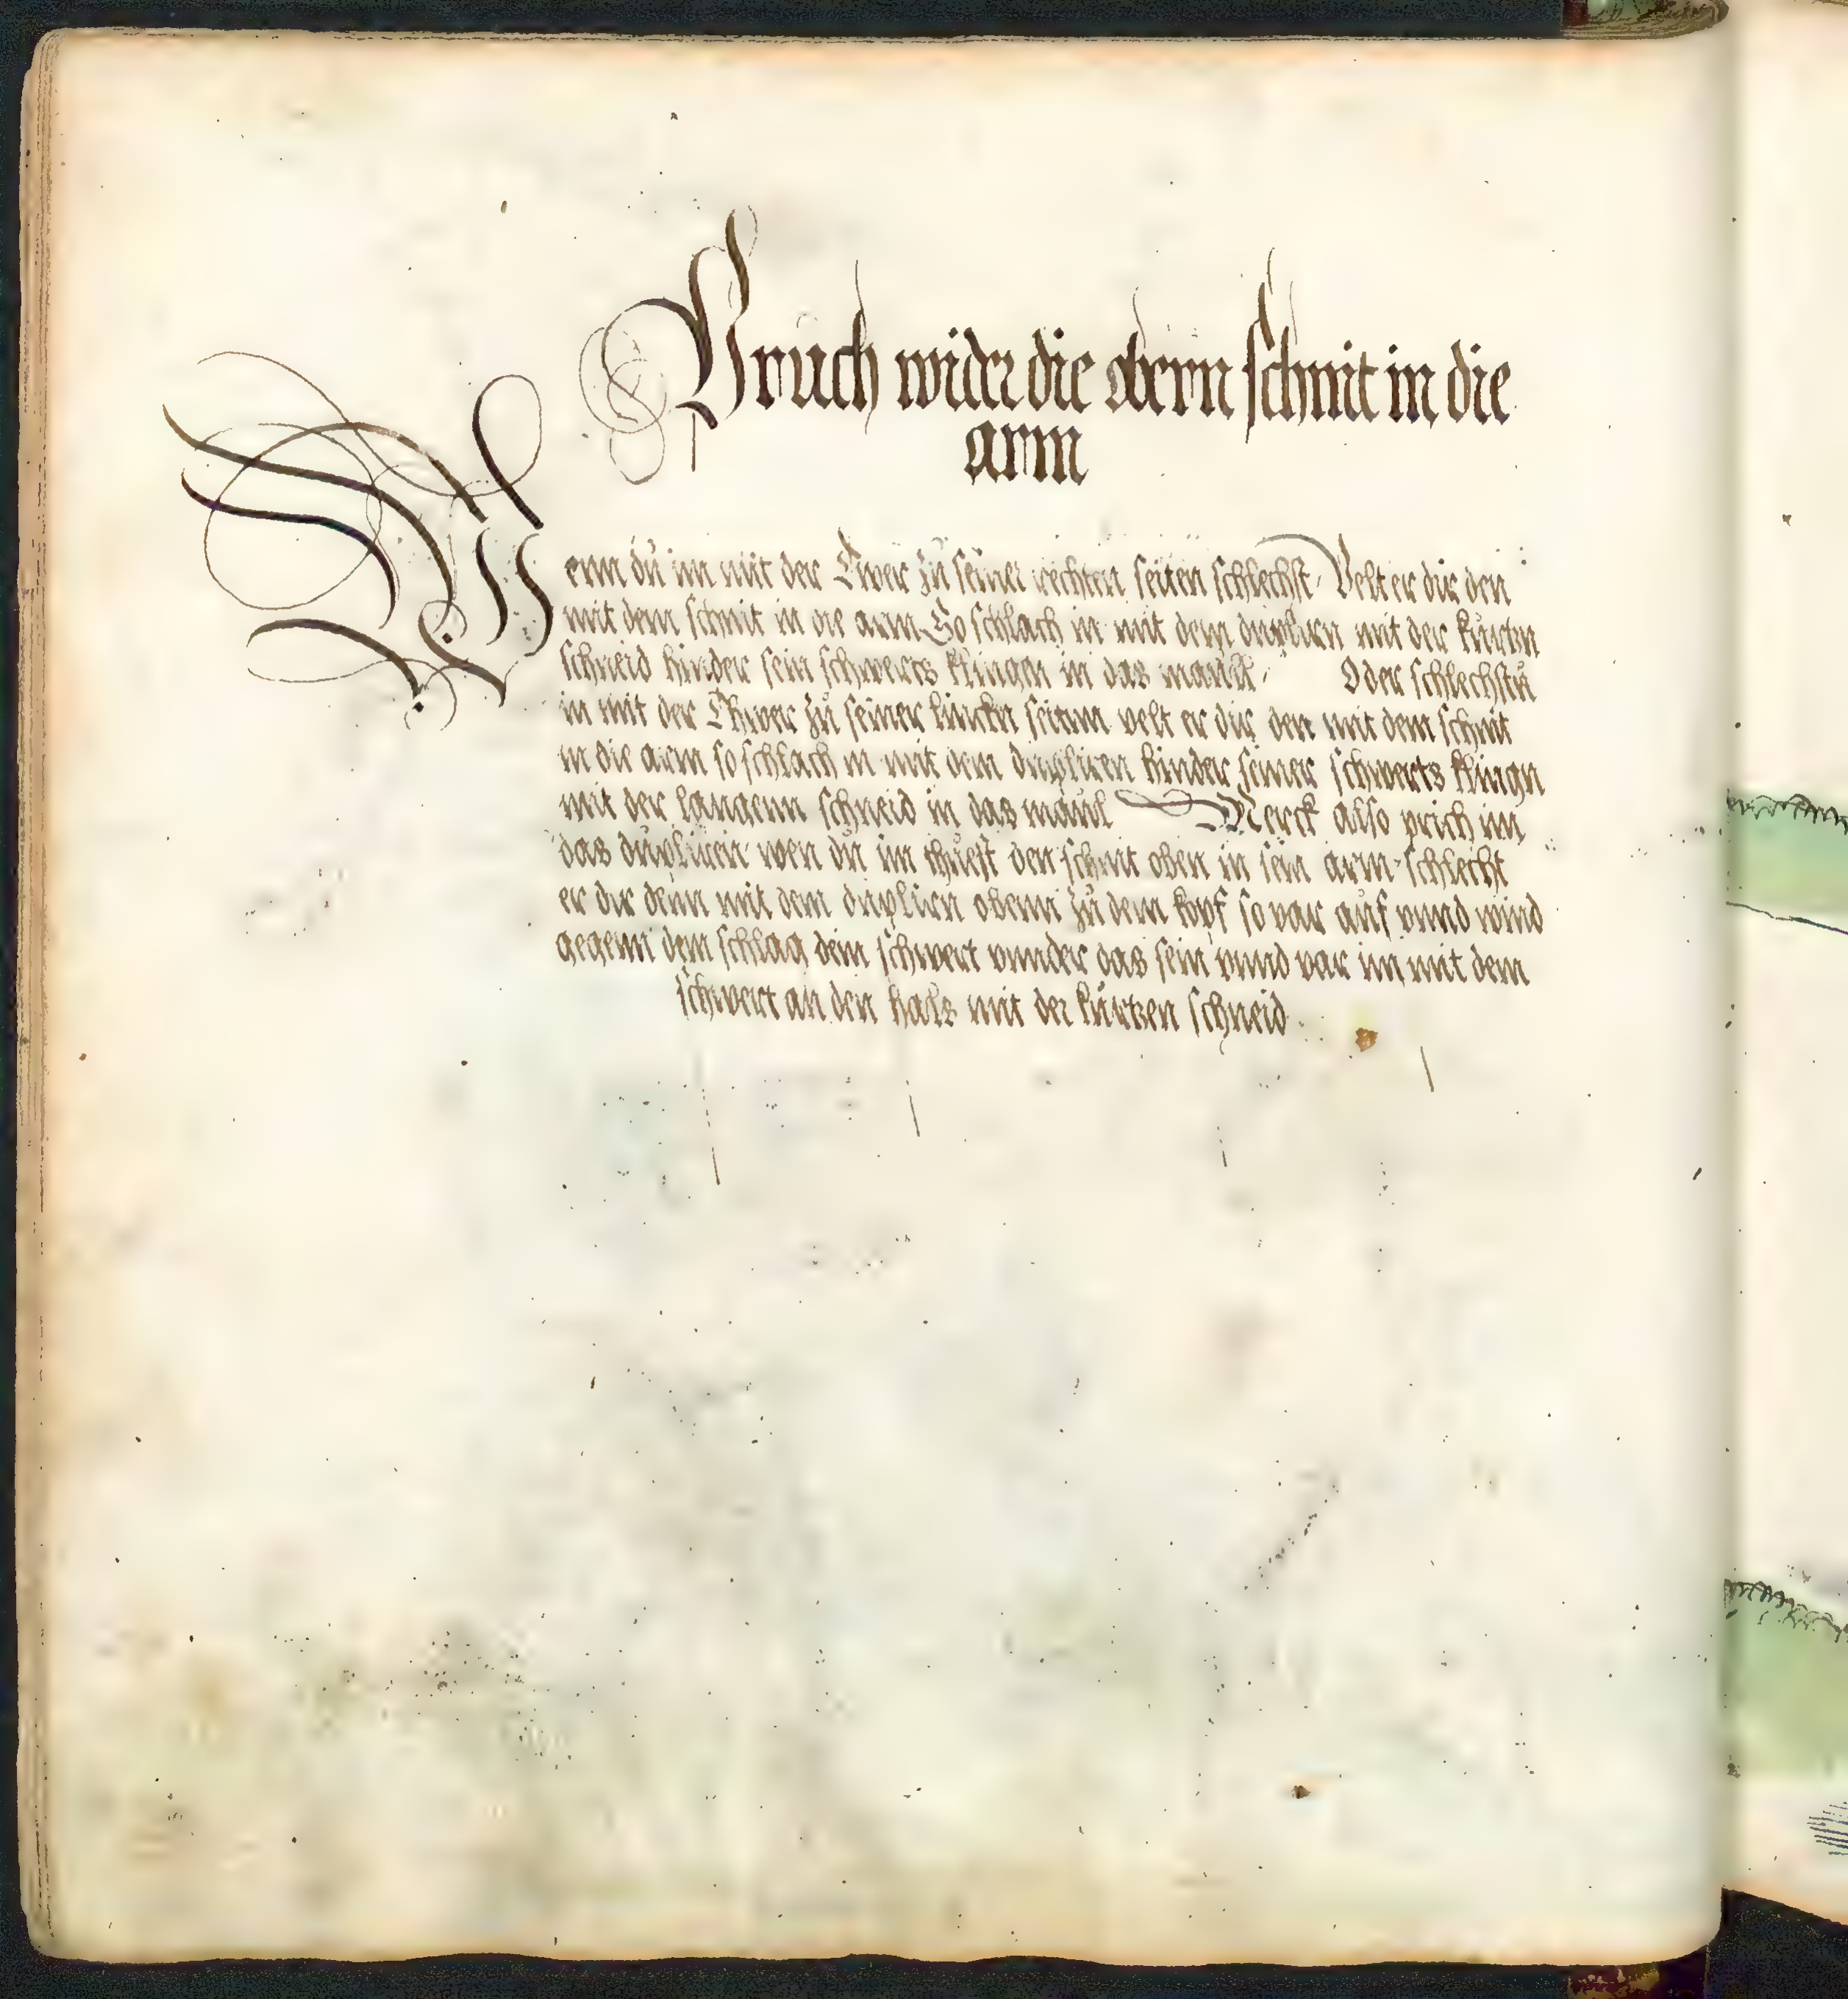 Bruch wider die obern schnit in die
arm
Wenn du im mit der Twer zu seiner rechten seiten schlechst Velt er dir den
mit dem schnit in die arm So schlach in mit dem duplirn mit der kurtzn
schneid hinder sein schwerts klingen in das maul Oder schlechstu
in mit der Thwer zu seiner lincken seitenn velt er dir den mit dem schnit
in die arm so schlach in mit dem dupliren hinder seiner schwerts klingn
mit der langenn schneid in das maul Merck also prich im
das dupliren wen du im thuest den schnit oben in sein arm schlecht
er dir denn mit dem duplirn obenn zu dem kopf so var auf vnnd wind
gegenn dem schlag dein schwert vnnder das sein vnnd var im mit dem
schwert an den hals mit der kurtzen schneid